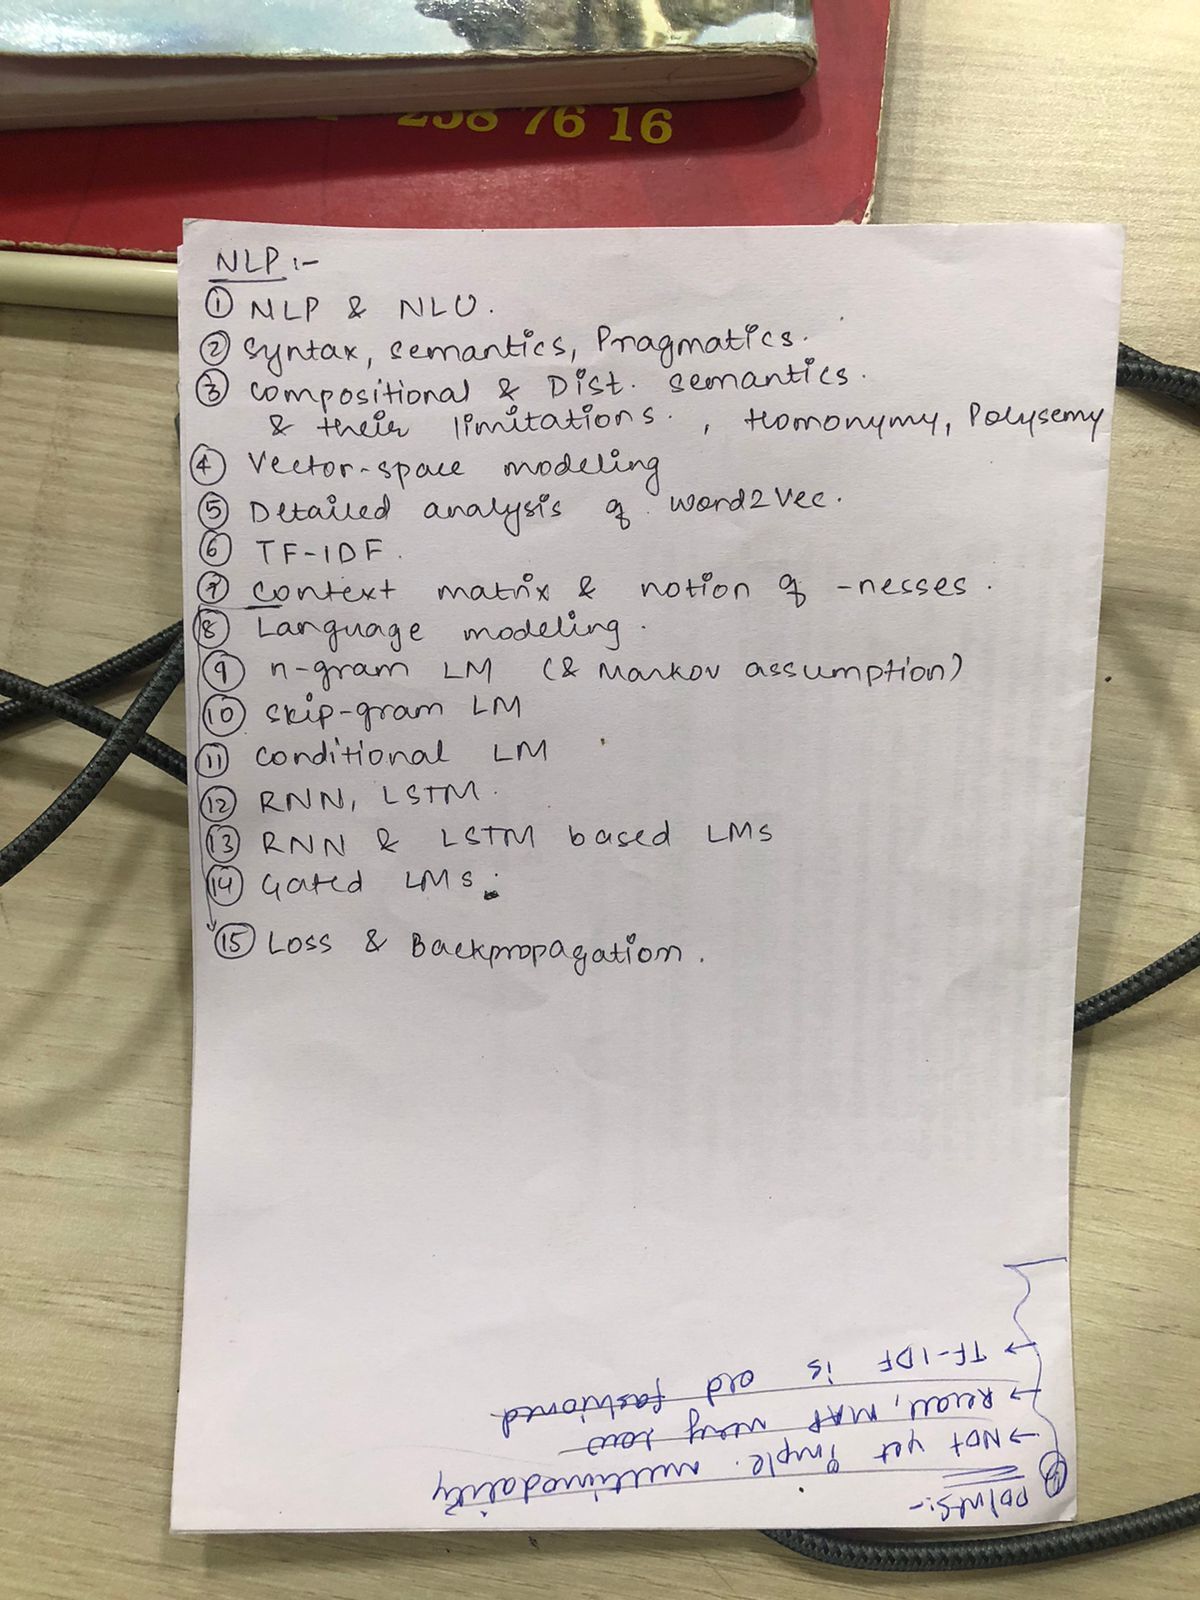 258 76 16
NLP :-
① NLP & NLU.
② Syntax, semantics, Pragmatics.
③ Compositional & Dist. semantics.
& their limitations. , Homonymy, Polysemy
④ Vector-space modeling
⑤ Detailed analysis of word2vec.
⑥ TF-IDF.
⑦ Context matrix & notion of -nesses.
⑧ Language modeling.
⑨ n-gram LM (& Markov assumption)
⑩ skip-gram LM
⑪ conditional LM
⑫ RNN, LSTM.
⑬ RNN & LSTM based LMs
⑭ Gated LMs.
⑮ Loss & Backpropagation.
Points:-
① → Not yet imple. multimodality
→ Recall, MAP very low
→ TF-IDF is old fashioned